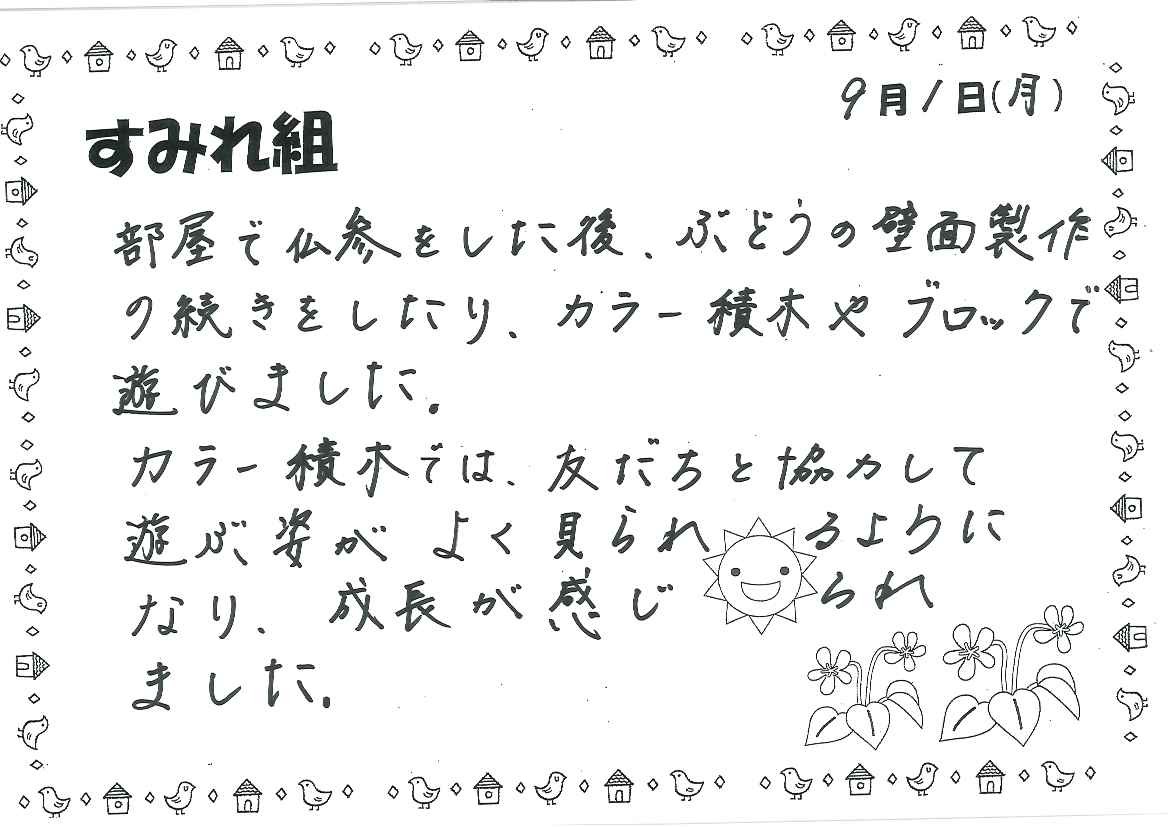 9月1日(月)
すみれ組
部屋で仏参をした後、ぶどうの壁面製作
の続きをしたり、カラー積木やブロックで
遊びました。
カラー積木では、友だちと協力して
遊ぶ姿がよく見られるように
なり、成長が感じられ
ました。